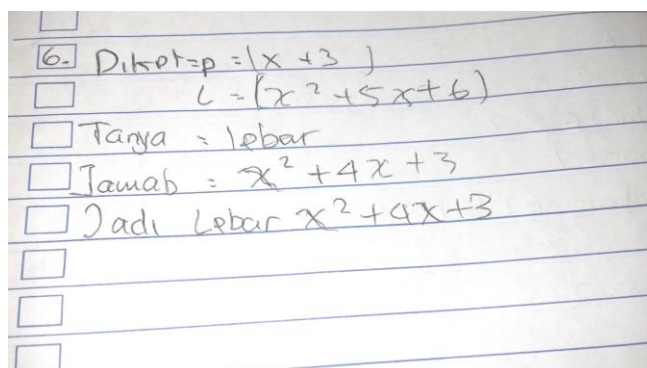 6. Diket = p = (x + 3)
L = (x² + 5x + 6)
Tanya = lebar
Jawab = x² + 4x + 3
Jadi Lebar x² + 4x + 3